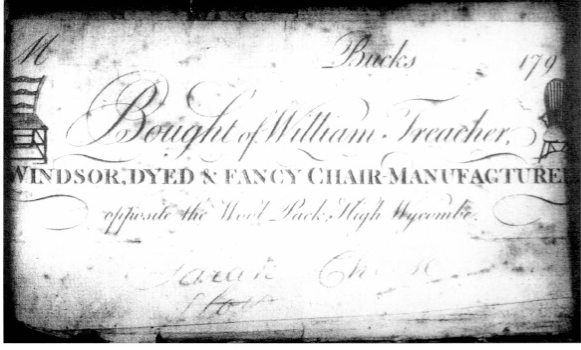 M Bucks 179
Bought of William Treacher,
WINDSOR, DYED & FANCY CHAIR-MANUFACTURE
opposite the Wool Pack, High Wycombe.
Sarah